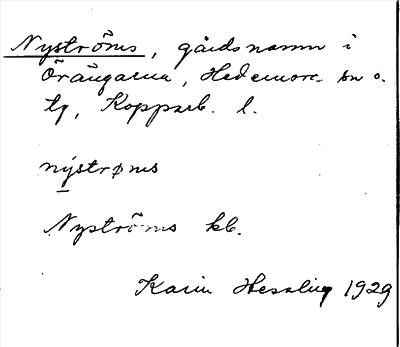 Nyströms, gårdsnamn i
Örängarna, Hedemora sn o.
tg, Kopparb. l.
nystrøms
Nyströms kb.
Karin Hessling 1929